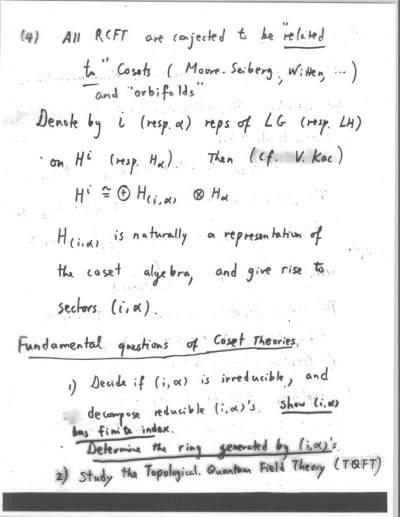 (4) All RCFT are conjected to be "related
to" Cosets (Moore-Seiberg, Witten, ...)
and "orbifolds"
Denote by i (resp. α) reps of LG (resp. LH)
on Hⁱ (resp. Hα). Then (cf. V. Kac)
Hⁱ ≅ ⊕ H(i,α) ⊗ Hα
H(i,α) is naturally a representation of
the coset algebra, and give rise to
sectors (i,α).
Fundamental questions of Coset Theories.
1) Decide if (i,α) is irreducible, and
decompose reducible (i,α)'s. Show (i,α)
has finite index.
Determine the ring generated by (i,α)'s.
2) Study the Topological Quantum Field Theory (TQFT)